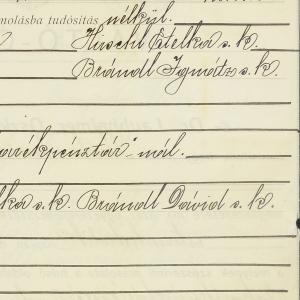 molásba tudósítás nélkül.
Hirschl Etelka s. k.
Brändl Ignátz s. k.
arékpénztár"-nál.
lka s. k. Brändl Dávid s. k.